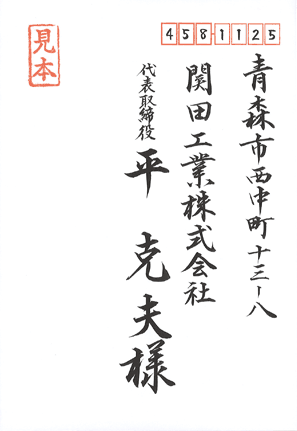 458-1125
青森市西中町十三-八
関田工業株式会社
代表取締役
平克夫様
見本